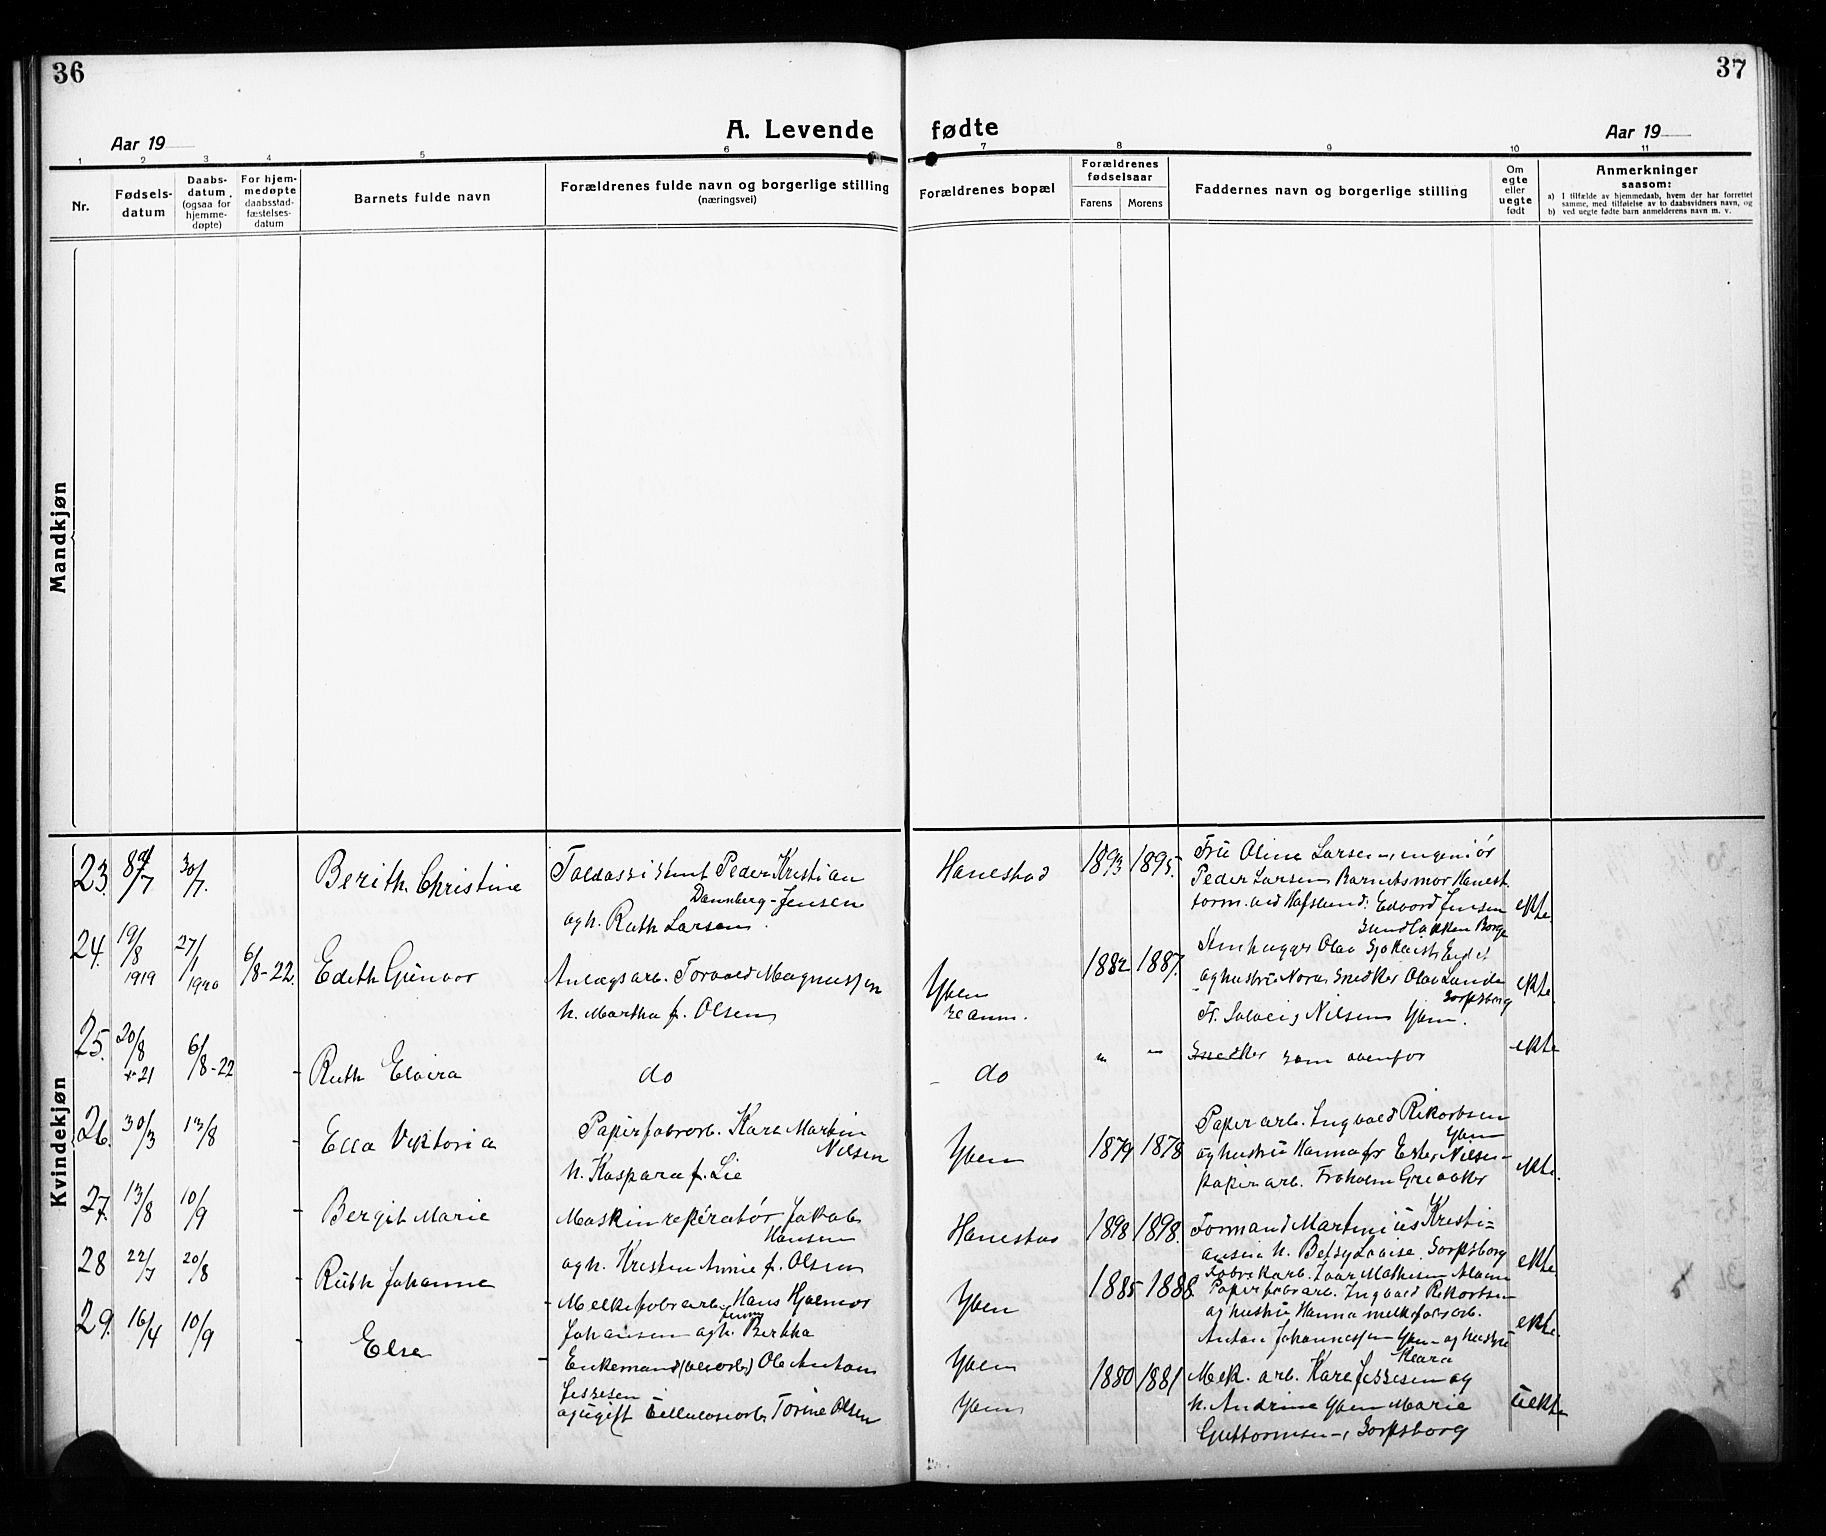 36
37
A. Levende fødte
Aar 19
Aar 19
1 2 3 4 5 6 7 8 9 10 11
Nr.
Fødsels-
datum
Daabs-
datum
(ogsaa for
hjemme-
døpte)
For hjem-
medøpte
daabsstad-
fæstelses-
datum
Barnets fulde navn
Forældrenes fulde navn og borgerlige stilling
(næringsvei)
Forældrenes bopæl
Forældrenes
fødselsaar
Farens Morens
Faddernes navn og borgerlige stilling
Om
egte
eller
uegte
født
Anmerkninger
saasom:
a) I tilfælde av hjemmedaab, hvem der har forrettet
samme, med tilføielse av to daabsvidners navn, og
b) ved uegte fødte barn anmelderens navn m. v.
Mandkjøn
Kvindekjøn
23. 8/7 30/7. Berith Christine
Toldassistent Peder Kristian
Dannberg-Jensen
og h. Ruth Larsen.
Hanestad 1893 1895.
Fru Oline Larsen, ingeniør
Peder Larsen Barnets mor Hanest.
form. ved Hafslund: Edvard Jensen
Sundløkken Borge
ekte
24. 19/8 1919 27/1 1920 6/8-22. Edith Gunvor
Anlægsarb. Torvald Magnussen
h. Martha f. Olsen
Yven
1882 1887.
og hustru Nora, Snedker Olav Lunde
Sarpsborg
Fr. Solveig Nilsen Yven.
ekte
25. 20/8 21 6/8-22 Ruth Elvira
do
do
" "
Snedker som ovenfor
ekte
26. 30/3 13/8 Ella Viktoria
Papirfabrarb. Karl Martin
Nilsen
h. Kaspara f. Lie
Yven 1879 1878
Papirarb. Ingvald Rikardsen
Yven
og hustru Hanna fr Ester Nilsen
papirarb. Froholm Greaaker
ekte.
27. 13/8 10/9 Bergit Marie
Maskinreperatør Jakob
Hansen
og h. Kristen Annie f. Olsen
Hanestad 1898 1898.
Formand Martinius Kristi-
ansen h. Betsy Lovise, Sarpsborg
ekte.
28 22/7 20/8 Ruth Johanne
Melkefabrarb. Hans Hjalmar
Johansen og h. Bertha
Yven 1885 1888.
Papirfabrarb. Ingvald Rikardsen
og hustru Hanna melkefabrarb.
Anton Johannessen Yven og hustru
Klara
ekte.
29. 16/4 10/9 Else
Enkemand Ole Anton
Jessesen
og ugift Cellulosearb. Torine Olsen
Yven
Yven
1880 1881
Mek. arb. Karl Jessesen og
h. Andrine Yven Marie
Guttormsen, Sarpsborg
uekte